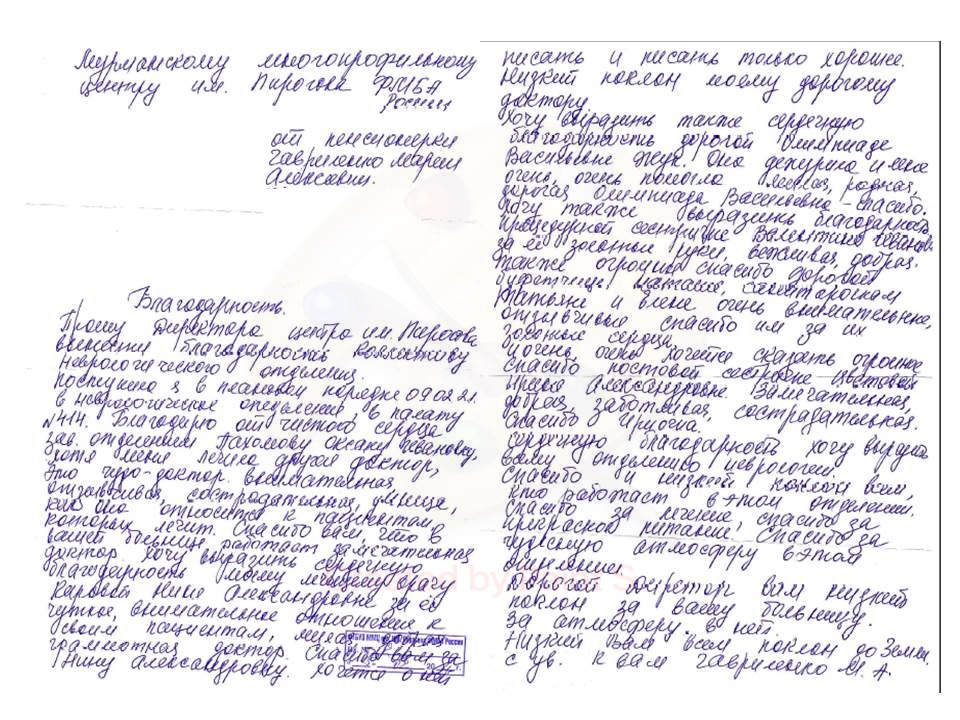 Мурманскому многопрофильному
центру им. Пирогова ФМБА
России
от пенсионерки
Гавриленко Марии
Алексавны.
Благодарность.
Прошу Директора центра им. Пирогова
вынести благодарность коллективу
неврологического отделения.
поступила я в плановом порядке 09.02.21.
в неврологическое отделение в палату
№414. Благодарю от чистого сердца
зав. отделением Пахомову Оксану Ивановну,
хотя меня лечила другая доктор,
Это чудо-доктор. внимательная
отзывчивая, сострадательная, умница,
как она относится к пациентам,
которых лечит. Спасибо вам, что в
вашей больнице работает замечательная
доктор. хочу выразить сердечную
благодарность моему лечащему врачу
Каровой Нине Александровне за её
чуткое, внимательное отношение к
своим пациентам, милая
грамотная доктор. Спасибо вам за
Нину Александровну. хочется о ней
писать и писать только хорошее.
Низкий поклон моему дорогому
доктору.
Хочу выразить также сердечную
благодарность дорогой Олимпиаде
Васильевне Жук. Она дежурила и мне
очень, очень помогла милая, родная,
дорогая Олимпиада Васильевна - спасибо.
Хочу также выразить благодарность
процедурной сестричке Валентине Ивановне
за её золотые руки, вежливая, добрая.
Также огромное спасибо дорогой
буфетчице Наташе, санитарочкам
Татьяне и Елене очень внимательные,
отзывчивые спасибо им за их
золотые сердца.
И очень, очень хочется сказать огромное
спасибо постовой сестричке Цветовой
Ирине Александровне. Замечательная,
добрая, заботливая, сострадательная.
Спасибо Ирочка.
Сердечную благодарность хочу выразить
всему отделению неврологии.
Спасибо и низкий поклон всем,
кто работает в этом отделении.
Спасибо за лечение, спасибо за
прекрасное питание, Спасибо за
чудесную атмосферу в этом
отделении.
Дорогой Директор вам низкий
поклон за вашу больницу.
За атмосферу в ней.
Низкий Вам всем поклон до Земли.
с ув. к вам Гавриленко М. А.